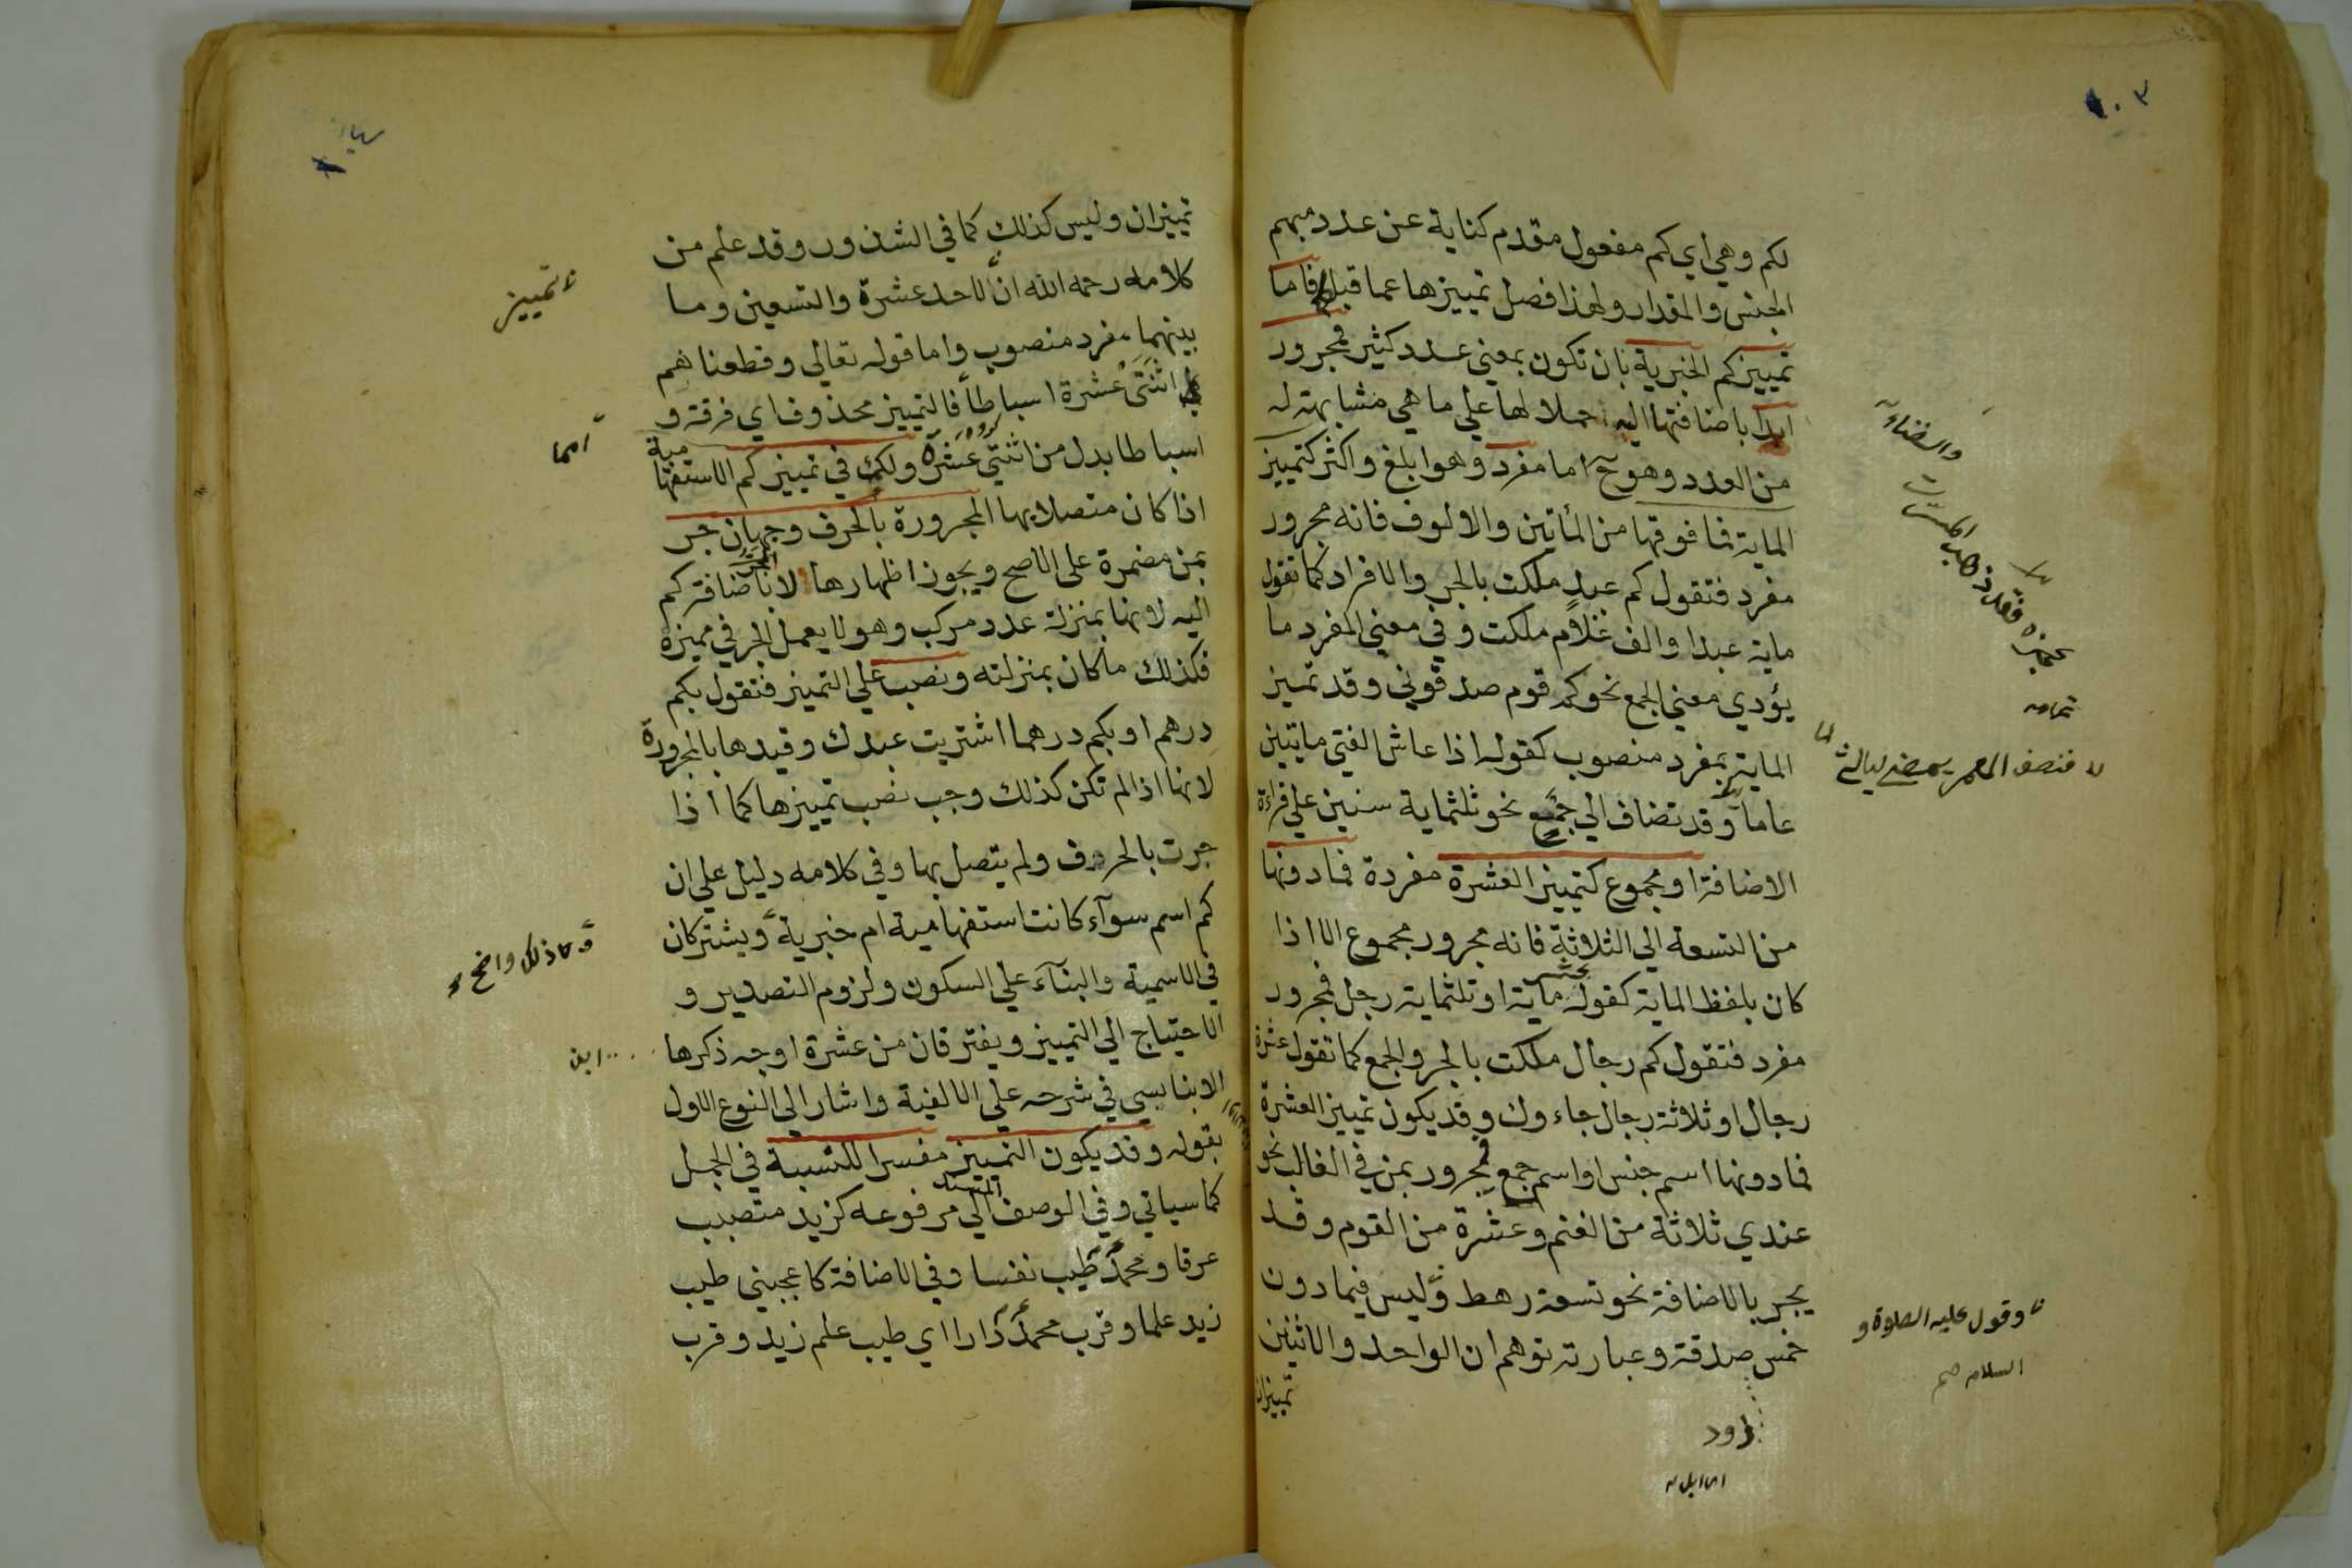 ١٠٣
لكم وهي اي كم مفعول مقدم كناية عن عدد مبهم
الجنس والمقدار ولهذا فصل تمييزها عما قبله فاما
تمييز كم الخبرية بان تكون بمعني عدد كثير فمجرور
ابدا باضافتها اليه حملا لها علي ما هي مشابهته له
من العدد وهو ح اما مفرد وهو ابلغ واكثر كتمييز
الماية فما فوقها من المأتين والالوف فانه مجرور
مفرد فتقول كم عبد ملكت بالجر والافراد كما تقول
ماية عبدا والف غلام ملكت وفي معني المفرد ما
يؤدي معني الجمع نحو كم قوم صدقوني وقد تميز
الماية بمفرد منصوب كقوله اذا عاش الفتي مايتين
عاما وقد تضاف الي جمع نحو ثلثماية سنين علي قراءة
الاضافة او مجموع كتمييز العشرة مفردة فما دونها
من التسعة الي الثلاثة فانه مجرور مجموع الا اذا
كان بلفظ الماية كقوله ماية او ثلثماية رجل فمجرور
مفرد فتقول كم رجال ملكت بالجر والجمع كما تقول عشرة
رجال او ثلاثة رجال جاءوك وقد يكون تمييز العشرة
فما دونها اسم جنس او اسم جمع فيجرور بمن في الغالب نحو
عندي ثلاثة من الغنم وعشرة من القوم وقد
يجر بالاضافة نحو تسعة رهط وليس فيما دون
خمس صدقة وعبارته توهم ان الواحد والاثنين
تميزان
فقد ذهب المسرت
والفناء
تمامه
وقول عليه الصلوة و
السلام صح
ذود
اي ابل
١٠٤
تمييزان وليس كذلك كما في الشذور وقد علم من
كلامه رحمه الله ان الاحد عشرة والتسعين وما
بينهما مفرد منصوب واما قوله تعالي وقطعناهم
اثنتي عشرة اسباطا فالتمييز محذوف اي فرقة و
اسباطا بدل من اثنتي عشرة ولك في تمييز كم الاستفها
مية
اذا كان متصلا بها المجرورة بالحرف وجهان جر
بمن مضمرة علي الاصح ويجوز اظهارها لا باضافة كم
اليه لانها بمنزلة عدد مركب وهو لا يعمل الجر في مميزة
فكذلك ما كان بمنزلته ونصب علي التميز فتقول بكم
درهم او بكم درهما اشتريت عبدك وقيدها بالمجرورة
لانها اذا لم تكن كذلك وجب نصب تمييزها كما اذا
جرت بالحرف ولم يتصل بها وفي كلامه دليل علي ان
كم اسم سوآء كانت استفهامية ام خبرية ويشتركان
في الاسمية والبنآء علي السكون ولزوم التصدير و
الاحتياج الي التمييز ويفترقان من عشرة اوجه ذكرها
الابناسي في شرحه علي الالفية واشار الي النوع الاول
بقوله وقد يكون التمييز مفسرا للنسبة في الجمل
كما سياتي وفي الوصف المسند الي مرفوعه كزيد متصبب
عرقا ومحمد طيب نفسا وفي الاضافة كاعجبني طيب
زيد علما وقرب محمد دارا اي طيب علم زيد وقرب
تمييز
امما
ذلك واضح